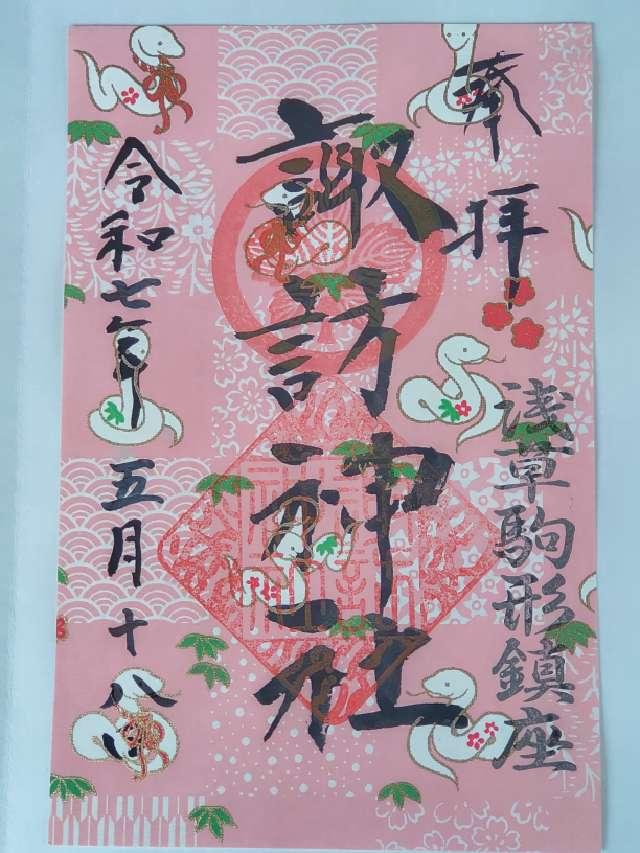 奉拝
浅草駒形鎮座
諏訪神社
令和七年五月十八日